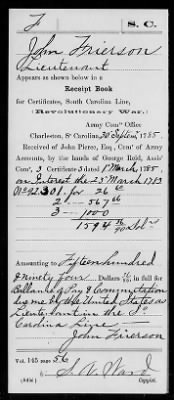 F S. C.
John Frierson
Lieutenant
Appears as shown below in a
Receipt Book
for Certificates, South Carolina Line,
(Revolutionary War.)
Army Com'rs Office
Charleston, So Carolina, 20 Septem' 1785.
Received of John Pierce, Esq., Com'r of Army
Accounts, by the hands of George Reid, Assis'
Com'r, 3 Certificate 3 dated 1 March 1785.
on Interest the 23 March 1783
No 92.301. for 26
2 - 567
3 - 1000
1594 Dol's
Amounting to Fifteen hundred
& Ninety four Dollars in full for
Ballance of Pay & Commutation
due me by the United States as
Lieutenant in the So
Carolina Line
John Frierson
Vol. 145 page 56
S. W. Ward
Copyist.